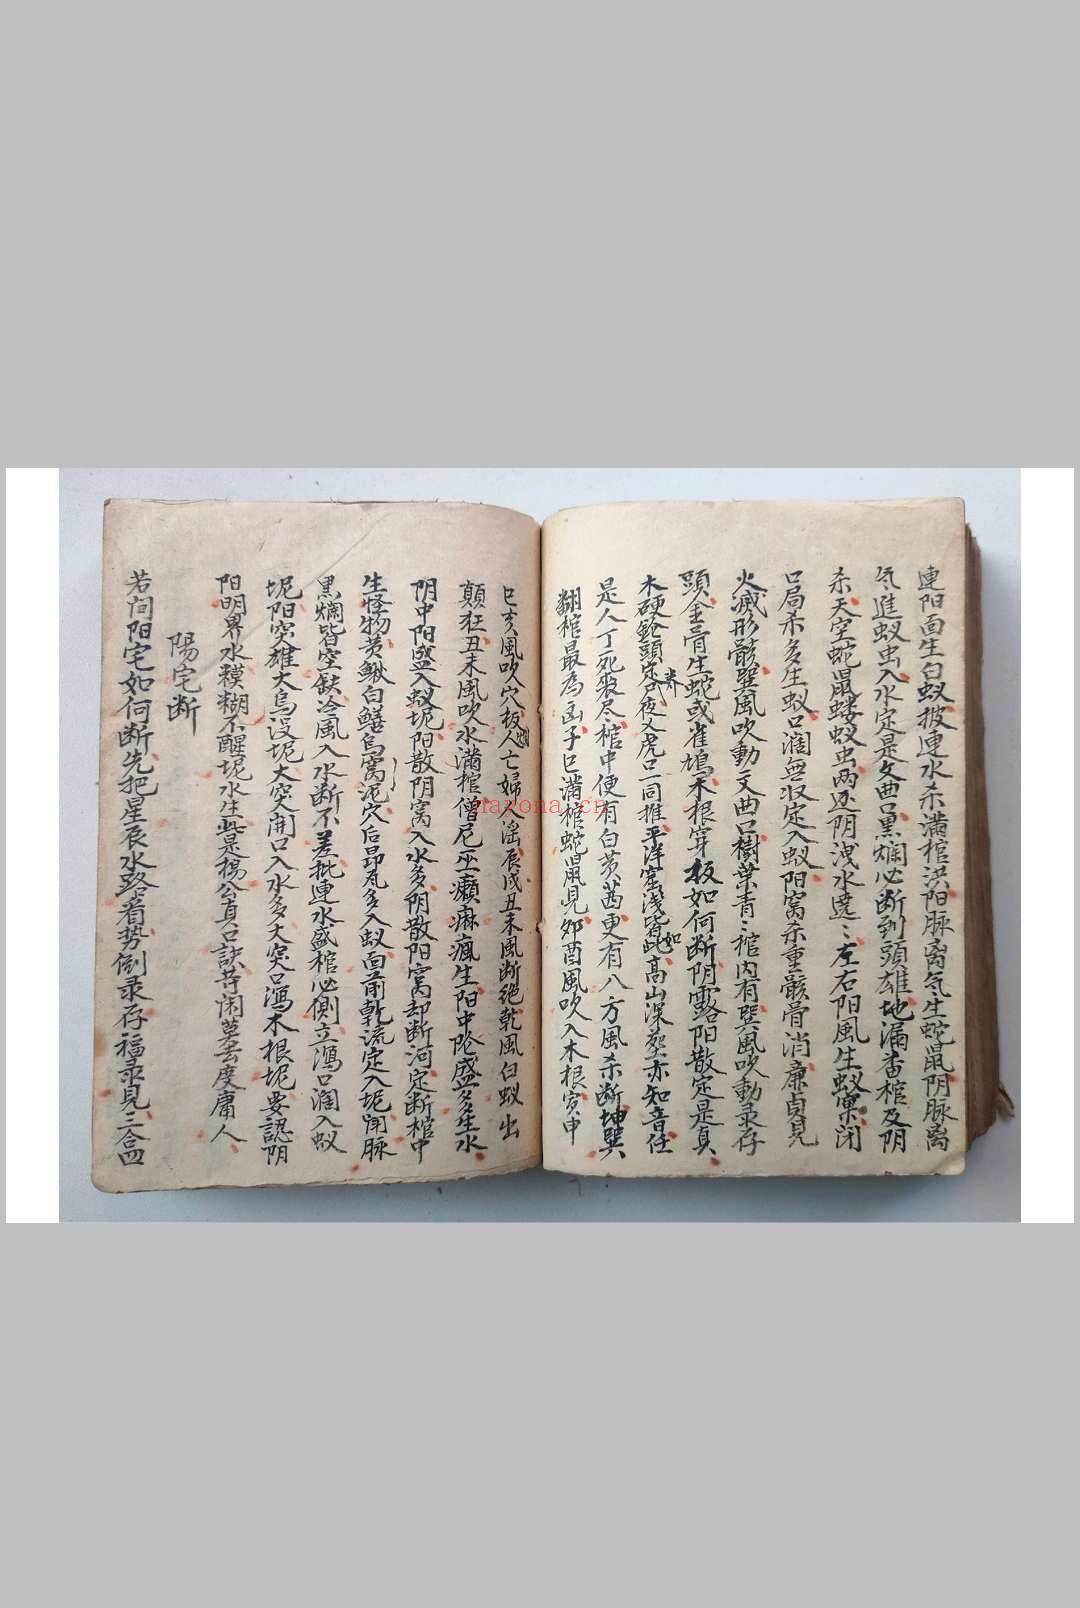 連阳面生白蚁披連水杀滿棺洪阳脉离气生蛇鼠阴脉离
气進蚁虫入水定是文曲口黑烂必断到頭雄地漏杳棺及阴
杀天空蛇鼠蝼蚁虫两边阴洩水遶〻左右阳風生蚁窠闭
口局杀多生蚁口濶無収定入蚁阳窝杀重骸骨消廉貞見
火滅形骸巽風吹動文曲口樹葉青〻棺内有巽風吹動录存
頭金骨生蛇或雀鳩木根穿板如何断阴露阳散定是真
木硬鎗頭定戌夜乂虎口一同推平洋窑浅皆此高山深塟亦知音任
是人丁死衰尽棺中便有白黄茜更有八方風杀断坤巽
翻棺最為凶子巳滿棺蛇鼠見夘酉風吹入木根寅申
巳亥風吹穴板人亡婦人滛辰戌丑未風断絕乾風白蚁出
顛狂丑未風吹水滿棺僧尼巫癩痳瘋生阳中阴盛多生水
阴中阳盛入蚁坭阳散阴窝入水多阴散阳窝却断河定断棺中
生怪物黄鰍白鱔烏窝泥穴后昂瓦多入蚁面前乾流定入坭閗脉
黒爛皆空缺冷風入水断不差批連水盛棺必側立瀉口濶入蚁
坭阳突雄大烏没坭大突開口入水多大突口瀉木根坭要認阴
阳明界水糢糊不醒坭水生此是楊公真口訣等闲莫去度庸人
陽宅断
若问阳宅如何断先把星辰水路看势倒录存福祿見三合四
nayona.cn